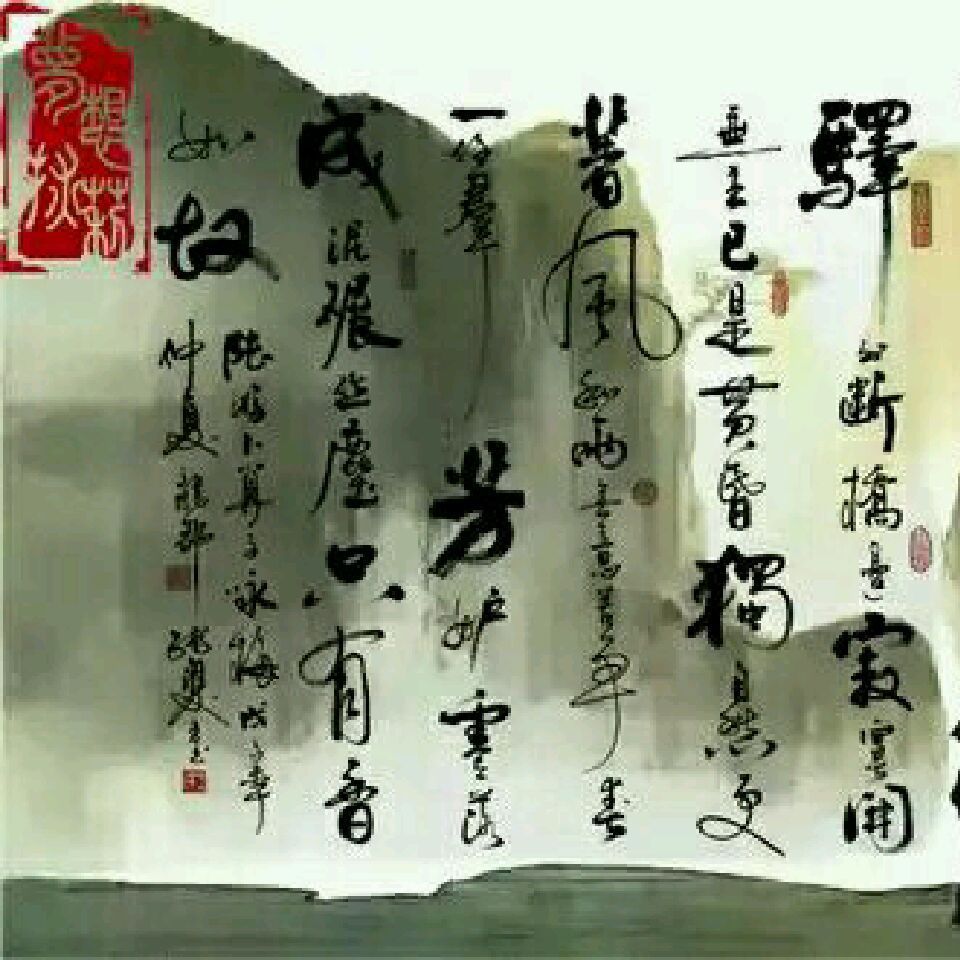 驛外斷橋邊寂寞開
無主已是黄昏獨自愁更
著風和雨無意苦争春
一任羣芳妒零落
成泥碾作塵只有香
如故
陸游卜算子咏梅戊子年
仲夏
夢想